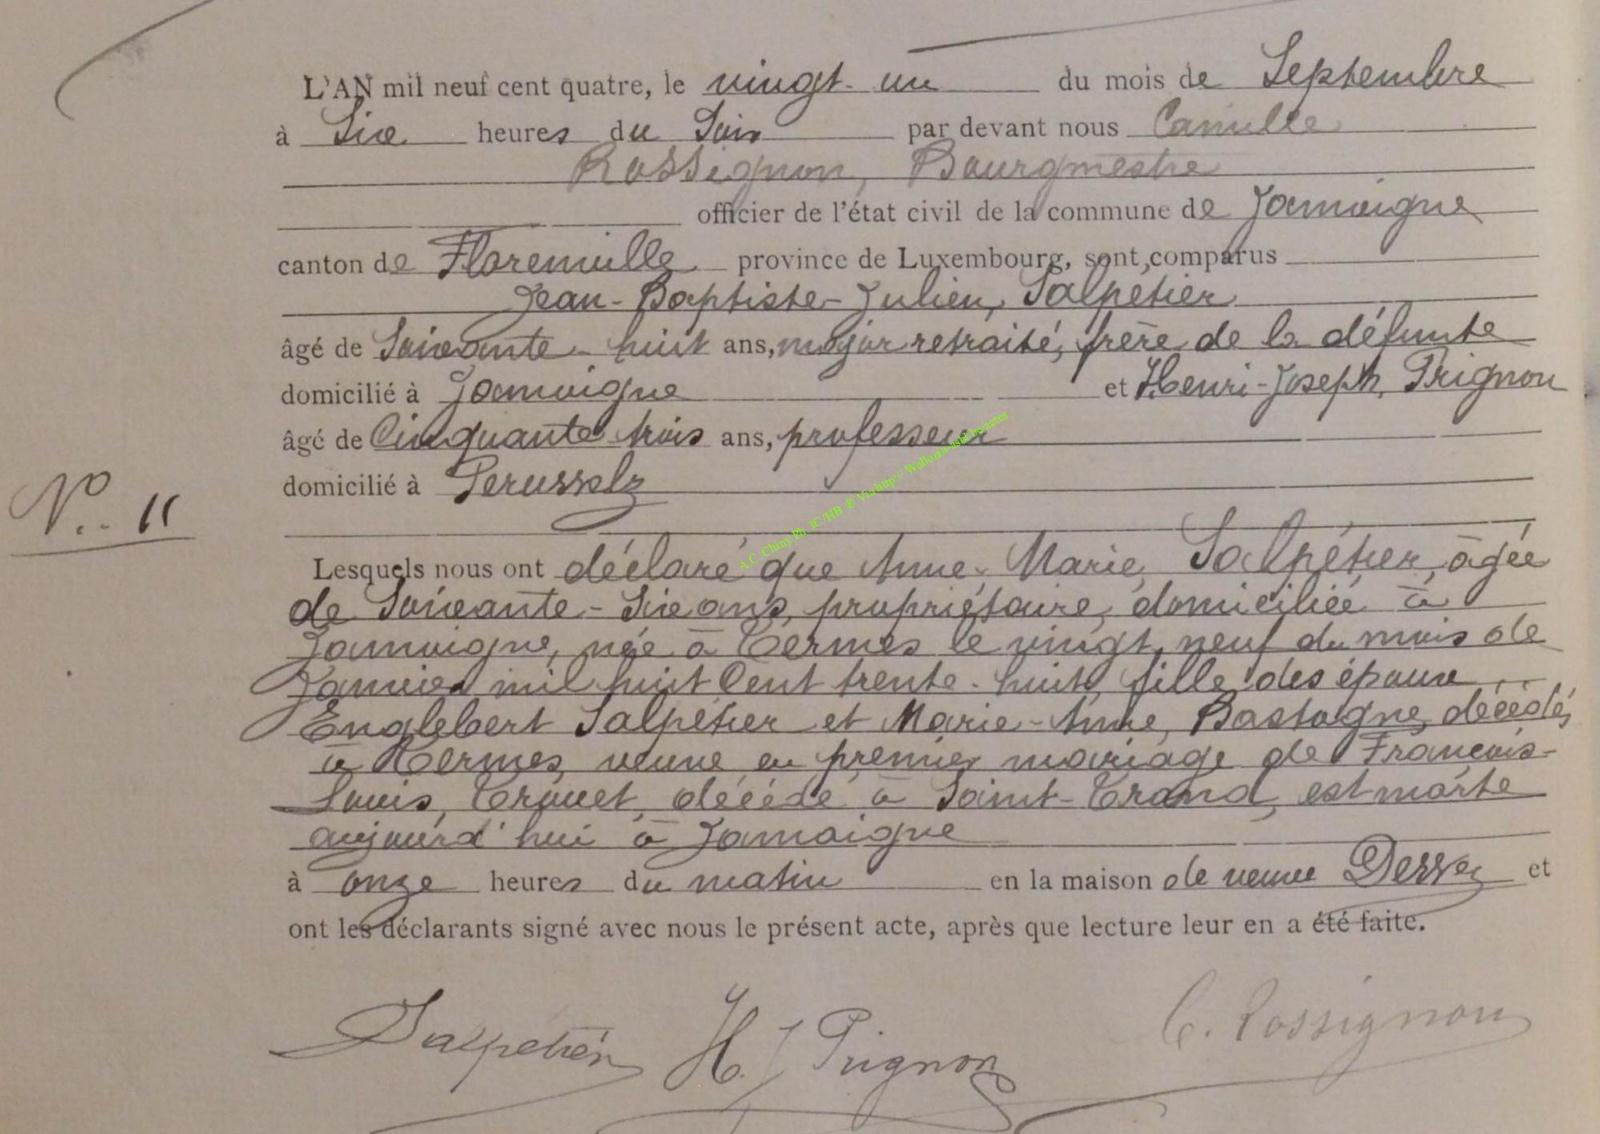 L'AN mil neuf cent quatre, le vingt-un du mois de Septembre
à Six heures du Soir par devant nous Camille
Rossignon, Bourgmestre
officier de l'état civil de la commune de Jamoigne
canton de Florenville province de Luxembourg, sont comparus
Jean-Baptiste-Julien, Salpétier
âgé de Soixante-huit ans, major retraité, frère de la défunte
domicilié à Jamoigne et Henri-Joseph, Prignon
âgé de Cinquante trois ans, professeur
domicilié à Peruwelz
N° 11
Lesquels nous ont déclaré que Anne-Marie, Salpétier, âgée
de Soixante-Six ans, propriétaire, domiciliée à
Jamoigne, née à Termes le vingt, neuf du mois de
Janvier mil huit Cent trente-huit, fille des époux
Englebert Salpétier et Marie-Anne, Bastogne, décédés
à Termes, veuve en premier mariage de François-
Louis, Trouet, décédé à Saint-Trond, est morte
aujourd'hui à Jamoigne
à onze heures du matin en la maison de veuve et
ont les déclarants signé avec nous le présent acte, après que lecture leur en a été faite.
Salpétier H. J Prignon C. Rossignon